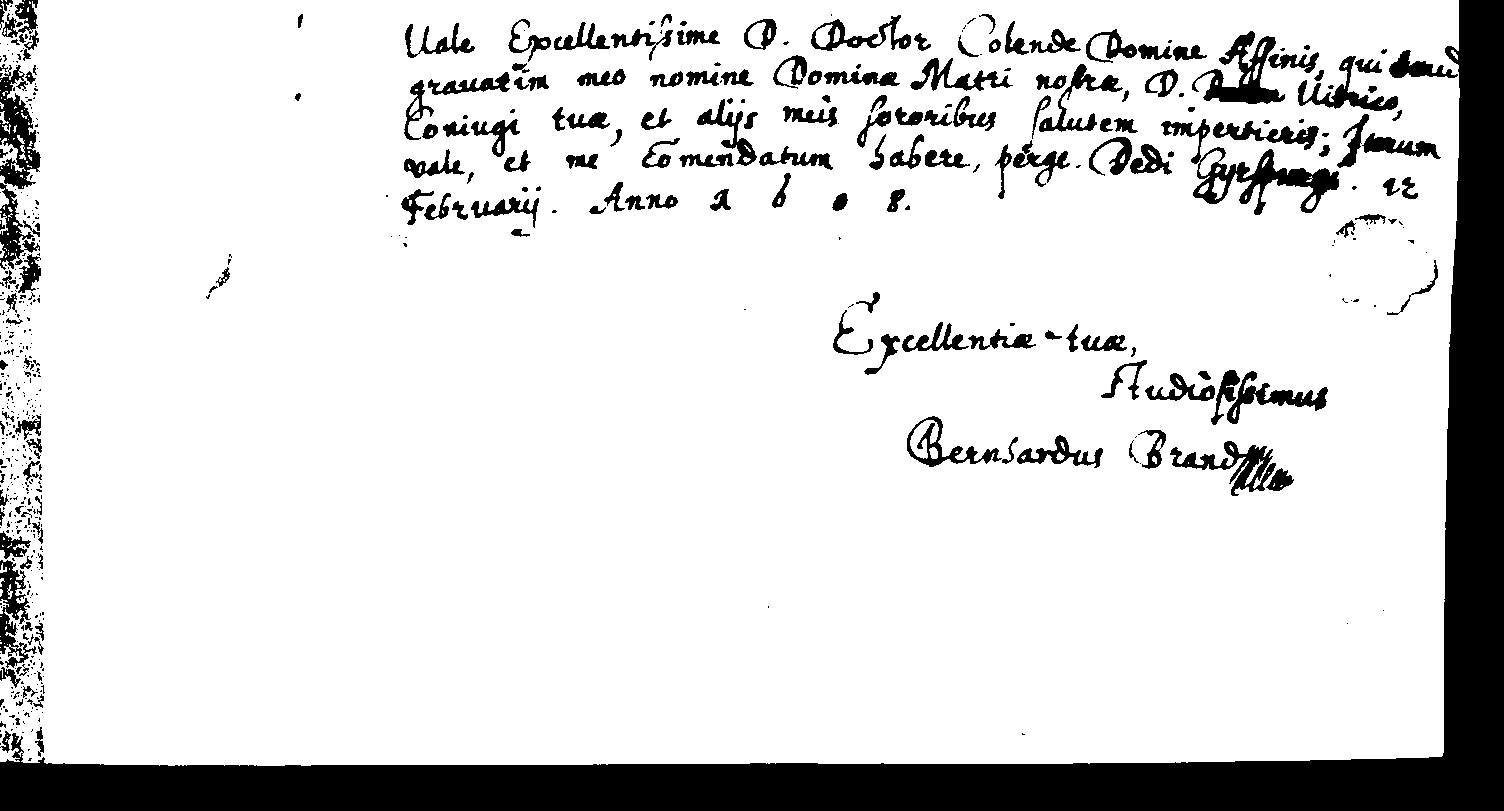 Vale Excellentissime D. Doctor Colende Domine Affinis, qui haud
gravatim meo nomine Dominæ Matri nostræ, D. Vitrico,
Coniugi tuæ, et alijs meis sororibus salutem impertieris; Iterum
vale, et me comendatum habere, perge. Dedi 12
Februarij. Anno 1608.
Excellentiæ tuæ,
Studiosissimus
Bernhardus Brand